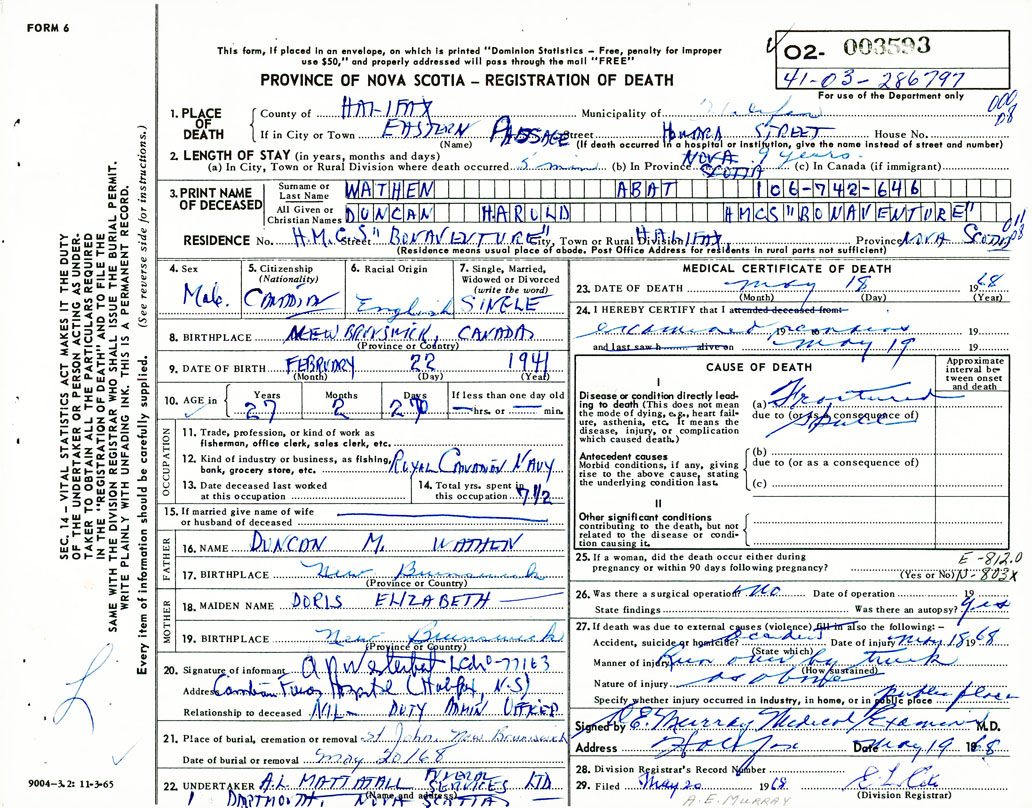 FORM 6
This form, if placed in an envelope, on which is printed "Dominion Statistics – Free, penalty for improper
use $50," and properly addressed will pass through the mail "FREE"
PROVINCE OF NOVA SCOTIA – REGISTRATION OF DEATH
O2- 003593
41-03-286797
For use of the Department only
SEC. 14 – VITAL STATISTICS ACT MAKES IT THE DUTY
OF THE UNDERTAKER OR PERSON ACTING AS UNDER-
TAKER TO OBTAIN ALL THE PARTICULARS REQUIRED
IN THE "REGISTRATION OF DEATH" AND TO FILE THE
SAME WITH THE DIVISION REGISTRAR WHO SHALL ISSUE THE BURIAL PERMIT.
WRITE PLAINLY WITH UNFADING INK. THIS IS A PERMANENT RECORD.
Every item of information should be carefully supplied. (See reverse side for instructions.)
1. PLACE OF DEATH
County of HALIFAX Municipality of
If in City or Town EASTERN PASSAGE Street HOWARD STREET House No.
(Name) (If death occurred in a hospital or institution, give the name instead of street and number)
2. LENGTH OF STAY (in years, months and days)
(a) In City, Town or Rural Division where death occurred 5 min (b) In Province NOVA SCOTIA 9 years. (c) In Canada (if immigrant)
3. PRINT NAME OF DECEASED
Surname or Last Name WATHEN ABAT 106-742-646
All Given or Christian Names DUNCAN HAROLD HMCS "BONAVENTURE"
RESIDENCE No. H.M.C.S. Street "BONAVENTURE" City, Town or Rural Division HALIFAX, Province NOVA SCOTIA
(Residence means usual place of abode. Post Office Address for residents in rural parts not sufficient)
4. Sex Male.
5. Citizenship (Nationality) CANADIAN
6. Racial Origin English
7. Single, Married, Widowed or Divorced (write the word) SINGLE
8. BIRTHPLACE NEW BRUNSWICK, CANADA
(Province or Country)
9. DATE OF BIRTH FEBRUARY 22 1941
(Month) (Day) (Year)
10. AGE in Years 27 Months 2 Days If less than one day old — hrs. or — min.
OCCUPATION
11. Trade, profession, or kind of work as fisherman, office clerk, sales clerk, etc.
12. Kind of industry or business, as fishing, bank, grocery store, etc. ROYAL CANADIAN NAVY
13. Date deceased last worked at this occupation
14. Total yrs. spent in this occupation 7 1/2
15. If married give name of wife or husband of deceased
FATHER
16. NAME DUNCAN M. WATHEN
17. BIRTHPLACE New Brunswick
(Province or Country)
MOTHER
18. MAIDEN NAME DORIS ELIZABETH
19. BIRTHPLACE New Brunswick
(Province or Country)
20. Signature of informant
Address Canadian Forces Hospital (Halifax, N.S)
Relationship to deceased NIL – DUTY ADMIN OFFICER
21. Place of burial, cremation or removal St John, New Brunswick
Date of burial or removal May 20/68
22. UNDERTAKER A.L. MATTATALL FUNERAL SERVICES LTD
(Name and address) DARTMOUTH, NOVA SCOTIA
MEDICAL CERTIFICATE OF DEATH
23. DATE OF DEATH May 18 1968
(Month) (Day) (Year)
24. I HEREBY CERTIFY that I attended deceased from:
examined remains 19 to 19
and last saw h alive on May 19 19
CAUSE OF DEATH
Approximate interval between onset and death
I
Disease or condition directly leading to death (This does not mean the mode of dying, e.g., heart failure, asthenia, etc. It means the disease, injury, or complication which caused death.)
(a) Fractured Skull
due to (or as a consequence of)
Antecedent causes
Morbid conditions, if any, giving rise to the above cause, stating the underlying condition last.
(b)
due to (or as a consequence of)
(c)
II
Other significant conditions contributing to the death, but not related to the disease or condition causing it.
25. If a woman, did the death occur either during pregnancy or within 90 days following pregnancy?
(Yes or No)
E-812.0
N-803x
26. Was there a surgical operation? No Date of operation 19
State findings Was there an autopsy? yes
27. If death was due to external causes (violence), fill in also the following:–
Accident, suicide or homicide? Accident Date of injury May 18 1968
(State which)
Manner of injury Run over by truck
(How sustained)
Nature of injury as above
Specify whether injury occurred in industry, in home, or in public place public place
Signed by Murray Medical Examiner M.D.
Address Halifax Date May 19 1968
28. Division Registrar's Record Number
29. Filed May 20 1968
(Division Registrar)
A.E. MURRAY
9004–3.2: 11-3-65